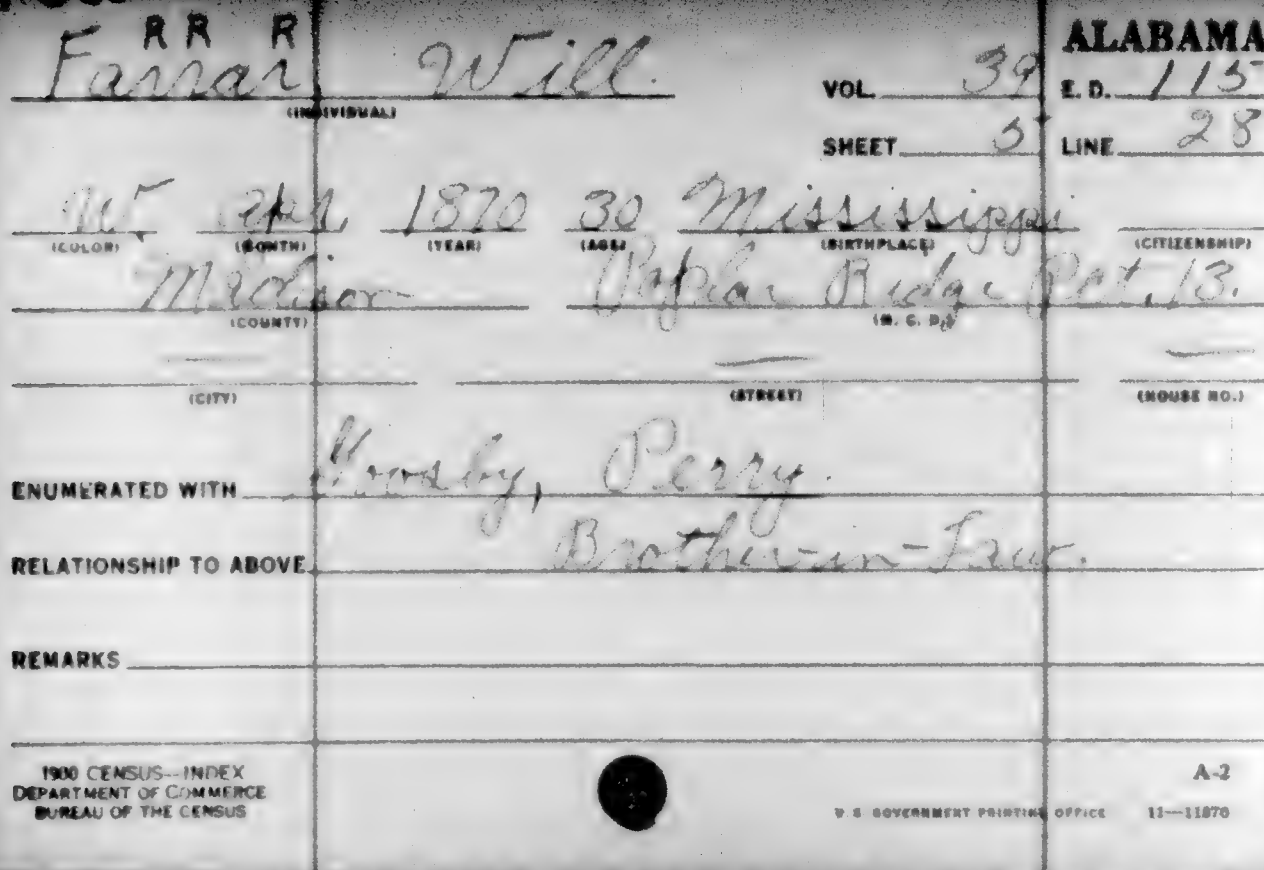 R R R
Farrar Will.
ALABAMA
VOL. 39 E. D. 115
(INDIVIDUAL)
SHEET 5 LINE 28
W. Apr. 1870 30 Mississippi
(COLOR) (MONTH) (YEAR) (AGE) (BIRTHPLACE) (CITIZENSHIP)
Madison Poplar Ridge Pct. 13.
(COUNTY) (M. C. D.)
(CITY) (STREET) (HOUSE NO.)
ENUMERATED WITH Perry.
RELATIONSHIP TO ABOVE Brother-in-Law.
REMARKS
1900 CENSUS—INDEX
DEPARTMENT OF COMMERCE
BUREAU OF THE CENSUS
A-2
U.S. GOVERNMENT PRINTING OFFICE 11—11870